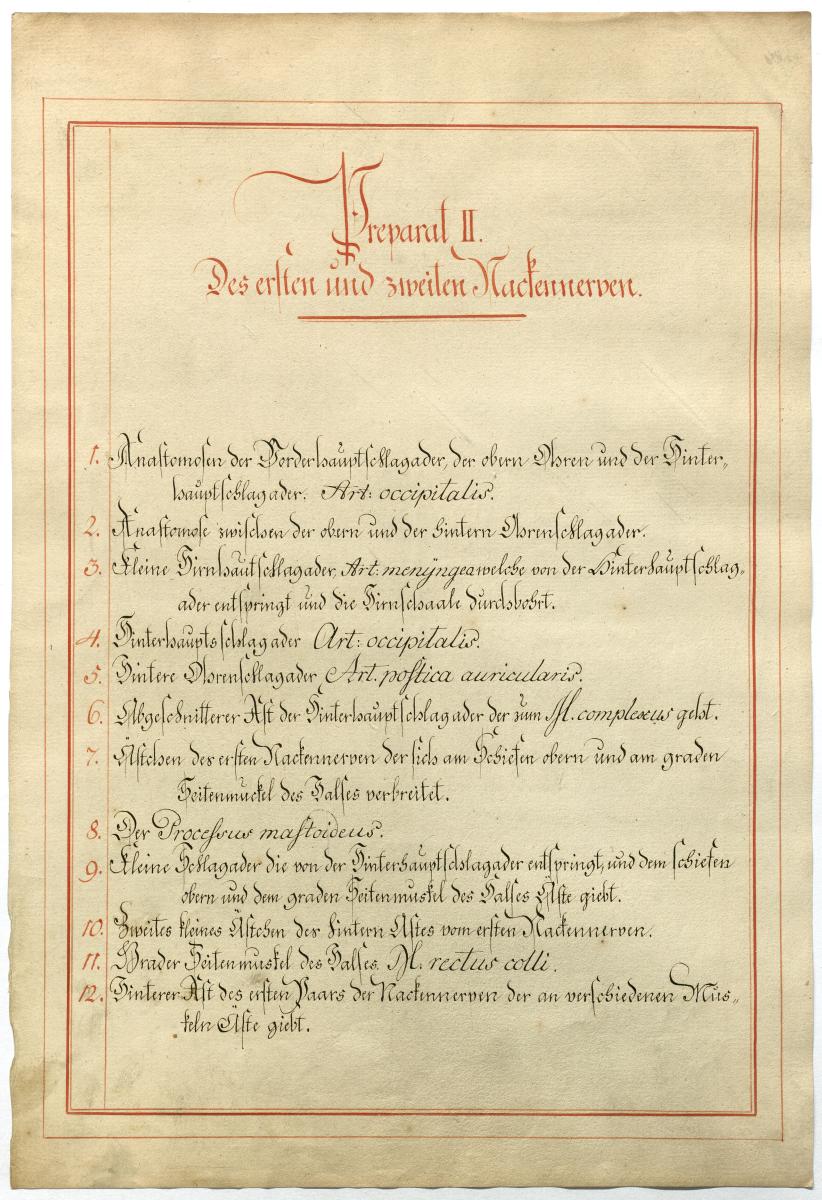 Preparat II.
Des ersten und zweiten Nackennerven.
1. Anastomosen der Vorderhauptschlagader, der obern Ohren und der Hinter-
hauptschlagader. Art: occipitalis.
2. Anastomose zwischen der obern und der hintern Ohrenschlagader.
3. Kleine Hirnhautschlagader, Art: menÿngea welche von der Hinterhauptschlag-
ader entspringt und die Hirnschaale durchbohrt.
4. Hinterhauptsschlagader Art: occipitalis.
5. Hintere Ohrenschlagader Art. postica auricularis.
6. Abgeschnitterer Ast der Hinterhauptschlagader der zum M. complexus geht.
7. Ästchen des ersten Nackennerven der sich am Schiefen obern und am graden
Seitenmuckel des Halses verbreitet.
8. Der Processus mastoideus.
9. Kleine Schlagader die von der Hinterhauptschlagader entspringt, und dem schiefen
obern und dem graden Seitenmuskel des Halses Äste giebt.
10. Zweites kleines Ästchen des hintern Astes vom ersten Nackennerven.
11. Grader Seitenmuskel des Halses. M: rectus colli.
12. Hinterer Ast des ersten Paars der Nackennerven der an verschiedenen Mus-
keln Äste giebt.